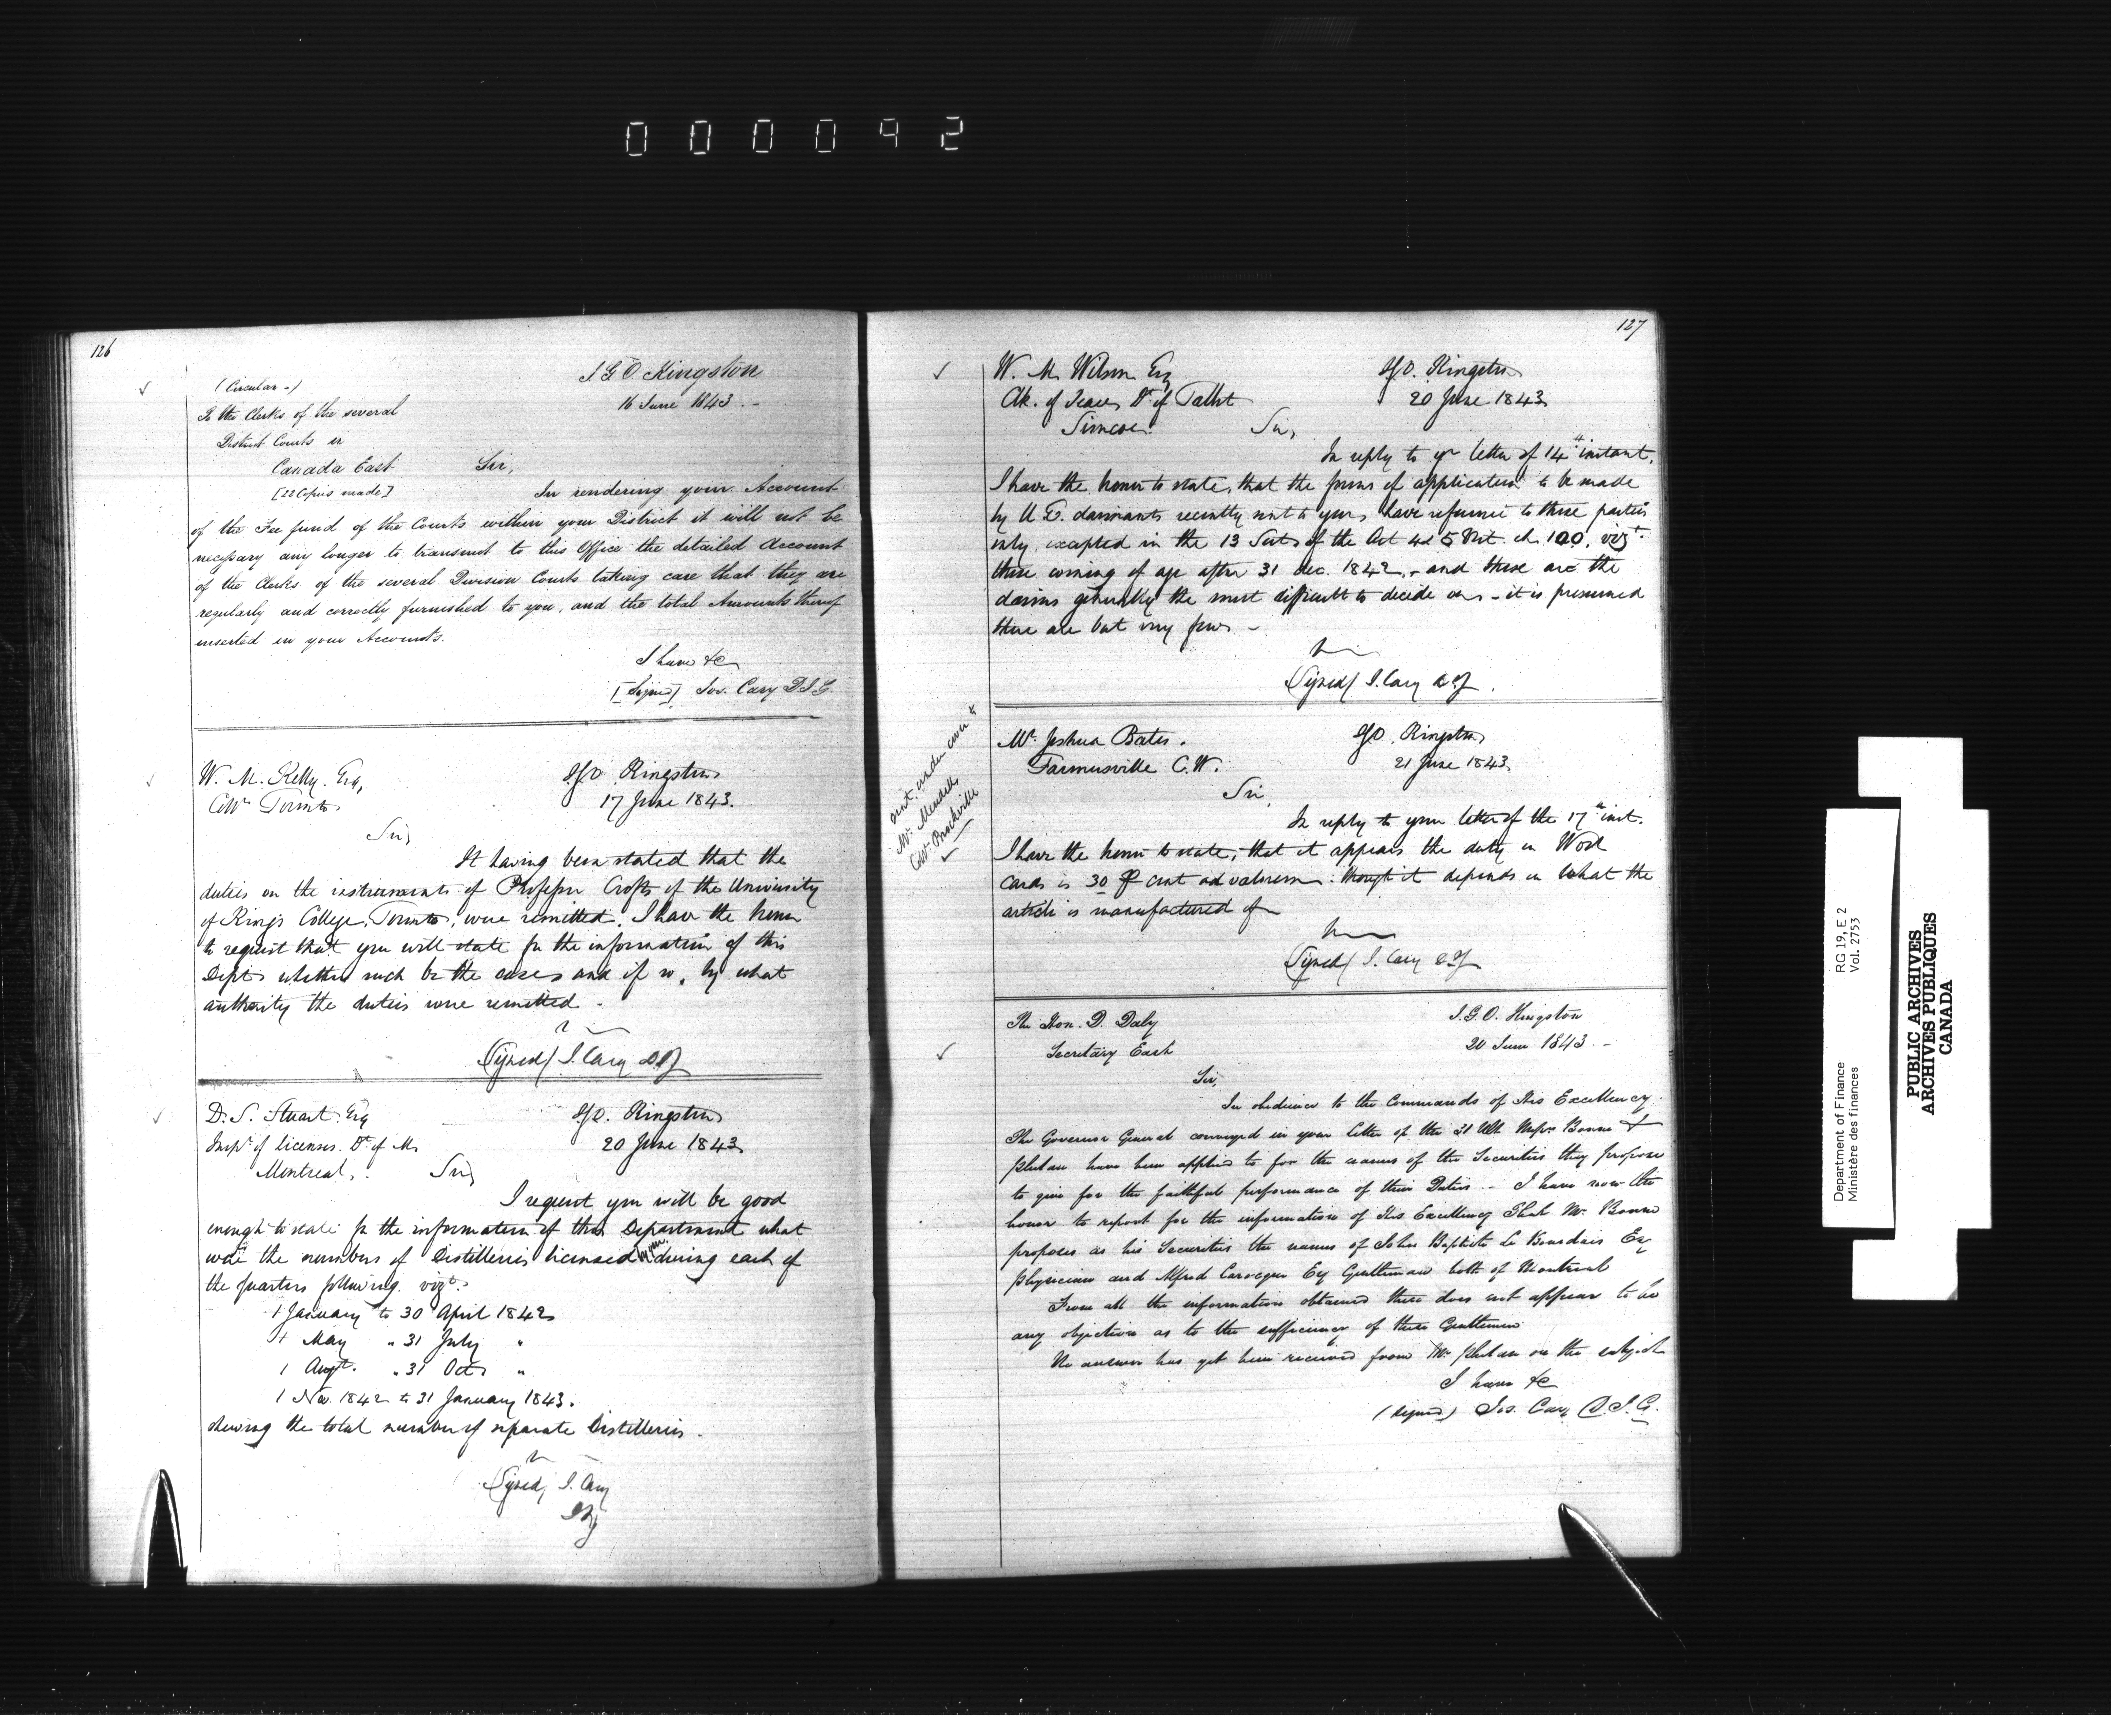 000092
126
(Circular -)
I. G. O. Kingston
16 June 1843. -
To the Clerks of the several
District Courts in
Canada East
Sir,
[22 Copies made]
In rendering your Account
of the Fee fund of the Courts within your District it will not be
necessary any longer to transmit to this Office the detailed Account
of the Clerks of the several Division Courts taking care that they are
regularly and correctly furnished to you, and the total Amounts thereof
inserted in your Accounts.
I have &c
[Signed] Jos. Cary D.I.G.
W. M. Kelly. Esq,
IGO. Kingston
Collr Toronto
17 June 1843.
Sir,
It having been stated that the
duties on the instruments of Professor Croft of the University
of King's College, Toronto, were remitted, I have the honor
to request that you will state for the information of this
Dept whether such be the case and if so, by what
authority the duties were remitted -
(Signed) J. Cary DIG
D. S. Stuart Esq
IGO. Kingston
Inspr of licenses. Dt of M.
20 June 1843
Montreal.
Sir,
I request you will be good
enough to state for the information of this Department what
were the numbers of Distilleries licensed during each of
the quarters following. vizt.
1 January to 30 April 1842
1 May " 31 July "
1 Augt. " 31 Oct "
1 Nov. 1842 to 31 January 1843.
shewing the total number of separate Distilleries.
(Signed) J. Cary
DIG
127
W. M. Wilson Esq
IGO. Kingston
Clk. of Peace Dt of Talbot
20 June 1843
Simcoe.
Sir,
In reply to yr letter of 14th instant.
I have the honor to state, that the forms of application to be made
by U.E. claimants recently sent to you, have reference to those parties
only excepted in the 13 Sect. of the Act 4 & 5 Vict. ch 100. vizt.
those coming of age after 31 Dec. 1842, - and these are the
claims generally the most difficult to decide on - it is presumed
there are but very few -
(Signed) J. Cary DIG.
sent under cover to
Mr. Meudell
Collr Brockville
Mr. Joshua Bates.
IGO. Kingston
Farmersville C.W.
21 June 1843
Sir,
In reply to your letter of the 17th inst.
I have the honor to state, that it appears the duty on Wool
cards is 30 P cent ad valorem: though it depends on what the
article is manufactured of
(Signed) J. Cary DIG
The Hon. D. Daly
I. G. O. Kingston
Secretary East
20 June 1843 -
Sir,
In obedience to the Commands of His Excellency
The Governor General conveyed in your letter of the 31 Ult. Messrs Bonne &
Phelan have been applied to for the names of the Securities they propose
to give for the faithful performance of their Duties - I have now the
honor to report for the information of His Excellency That Mr. Bonne
proposes as his Securities the names of John Baptiste Le Bourdais Esq
Physician and Alfred Esq Gentleman both of Montreal
From all the information obtained there does not appear to be
any objection as to the sufficiency of these Gentlemen
No answer has yet been received from Mr. Phelan on the subject
I have &c
(signed) Jos. Cary D.I.G.
Department of Finance RG 19, E 2
Ministère des finances Vol. 2753
PUBLIC ARCHIVES
ARCHIVES PUBLIQUES
CANADA